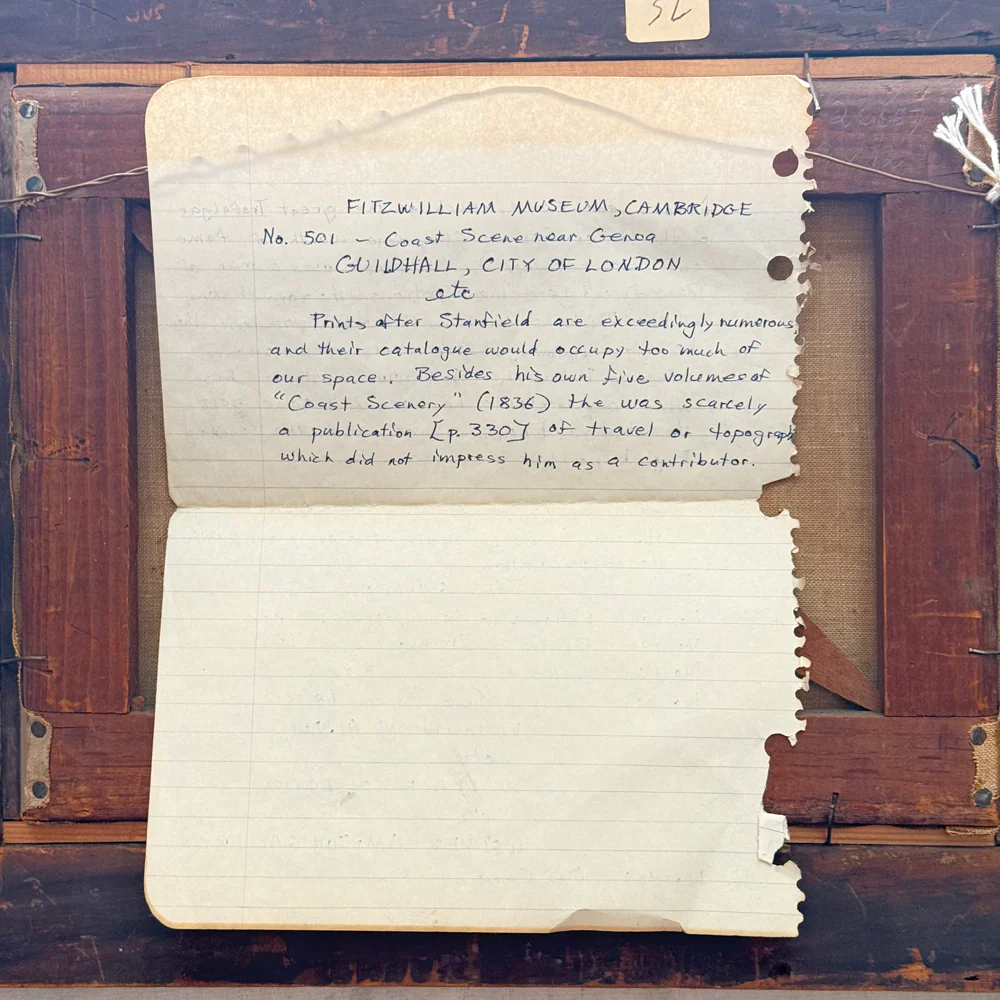 SL
FITZWILLIAM MUSEUM, CAMBRIDGE
No. 501 – Coast Scene near Genoa
GUILDHALL, CITY OF LONDON
etc
Prints after Stanfield are exceedingly numerous,
and their catalogue would occupy too much of
our space. Besides his own five volumes of
"Coast Scenery" (1836) the was scarcely
a publication [p. 330] of travel or topograph
which did not impress him as a contributor.